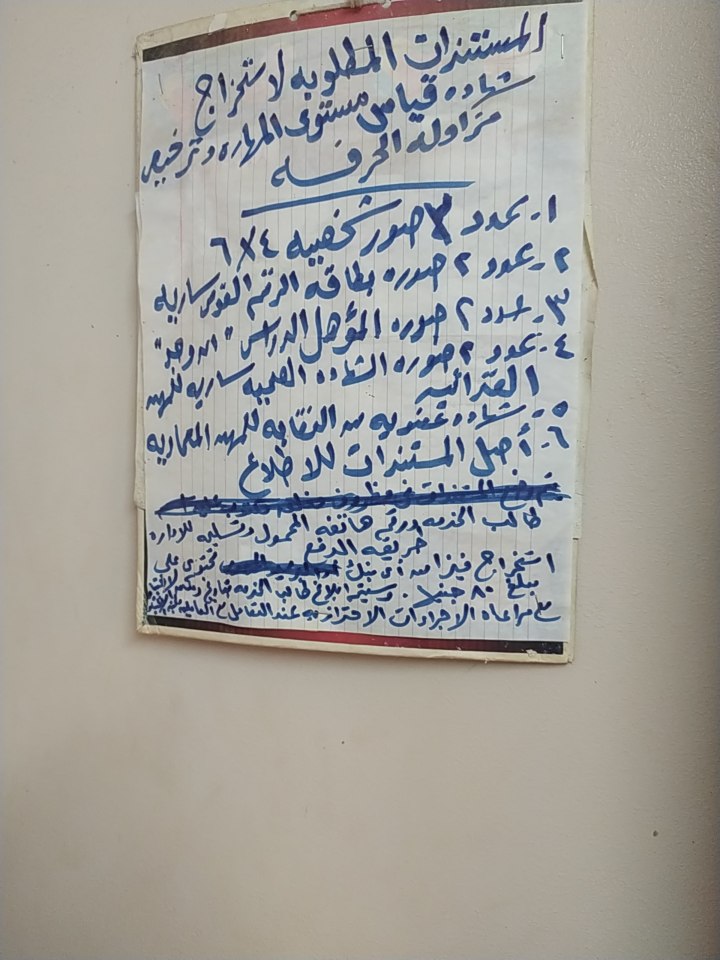 المستندات المطلوبه لاستخراج
شهاده قياس مستوى المهاره وترخيص
مزاوله الحرفه
١- عدد صور شخصيه ٤×٦
٢- عدد ٢ صوره بطاقه الرقم القومى ساريه
٣- عدد ٢ صوره المؤهل الدراسى "ان وجد"
٤- عدد ٢ صوره الشهاده الصحيه ساريه للمهن
الغذائيه
٥- شهاده عضويه من النقابه للمهن المعماريه
٦- أصل المستندات للاطلاع
طالب الخدمه ورقم هاتفه المحمول وتسليمه للاداره
طريقه الدفع
استخراج فيزا من اى بنك تحتوى على
مبلغ ٨٠ جنيها. وسيتم ابلاغ طالب الخدمه
مع مراعاه الاجراءات الاحترازيه عند التعامل مع